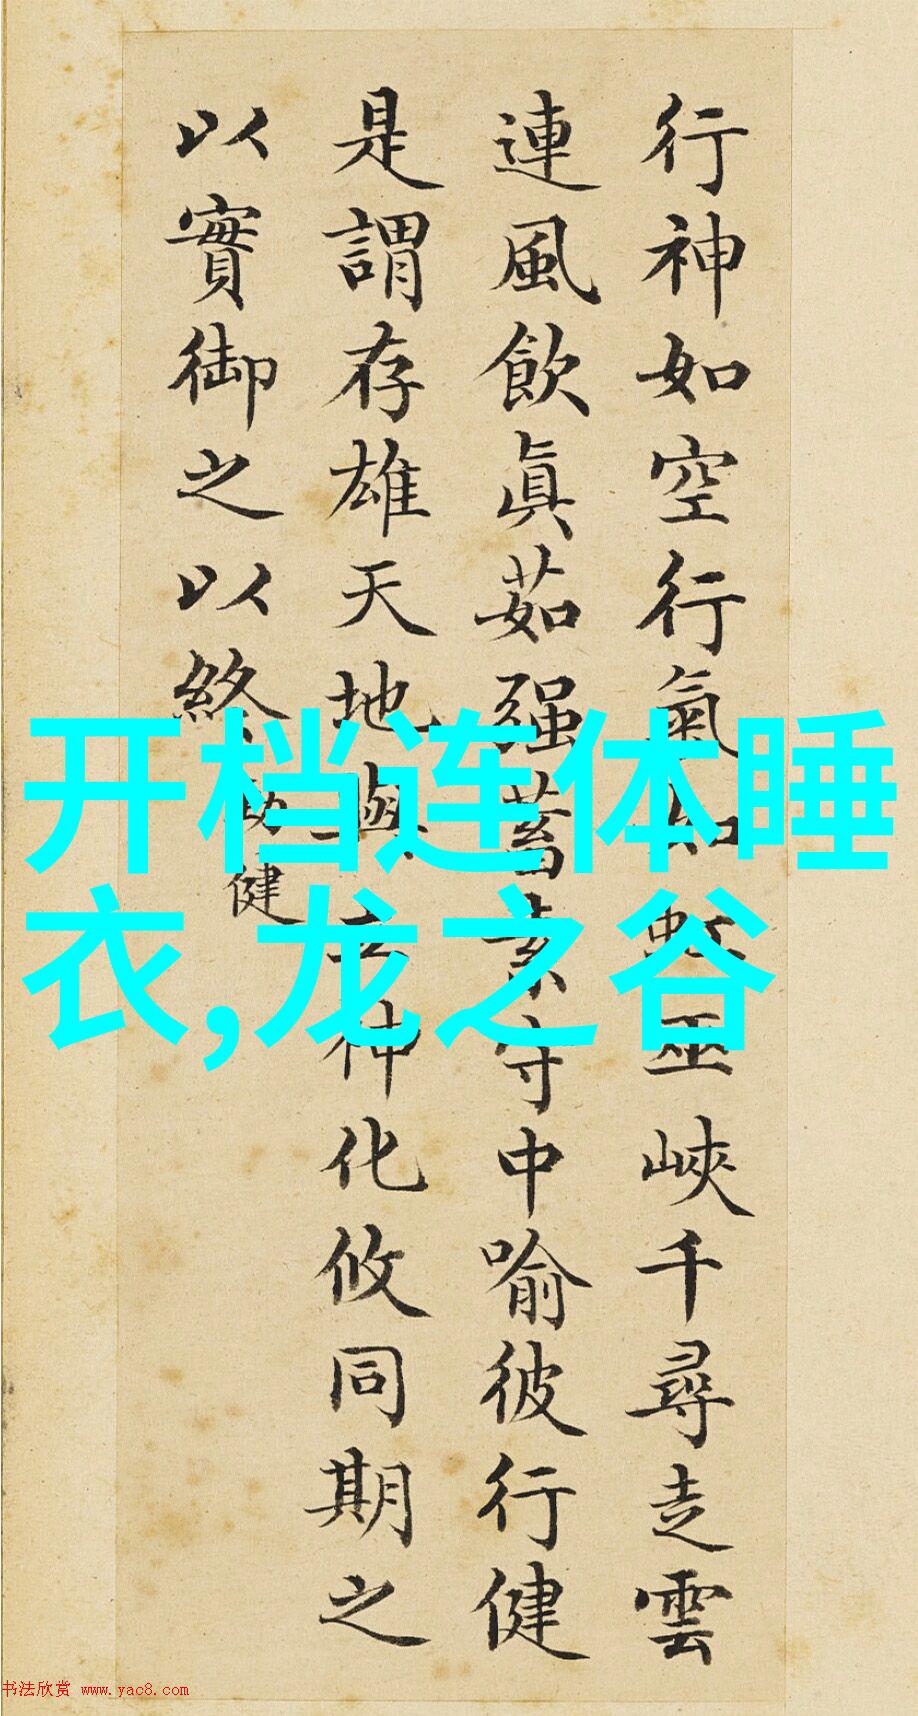 行神如空行氣如虹巫峽千尋走雲
連風飲眞茹强蓄素守中喻彼行健
是謂存雄天地與立神化攸同期之
以實御之以終
勁健
开档连体睡
衣,龙之谷
书法欣赏 www.yac8.com